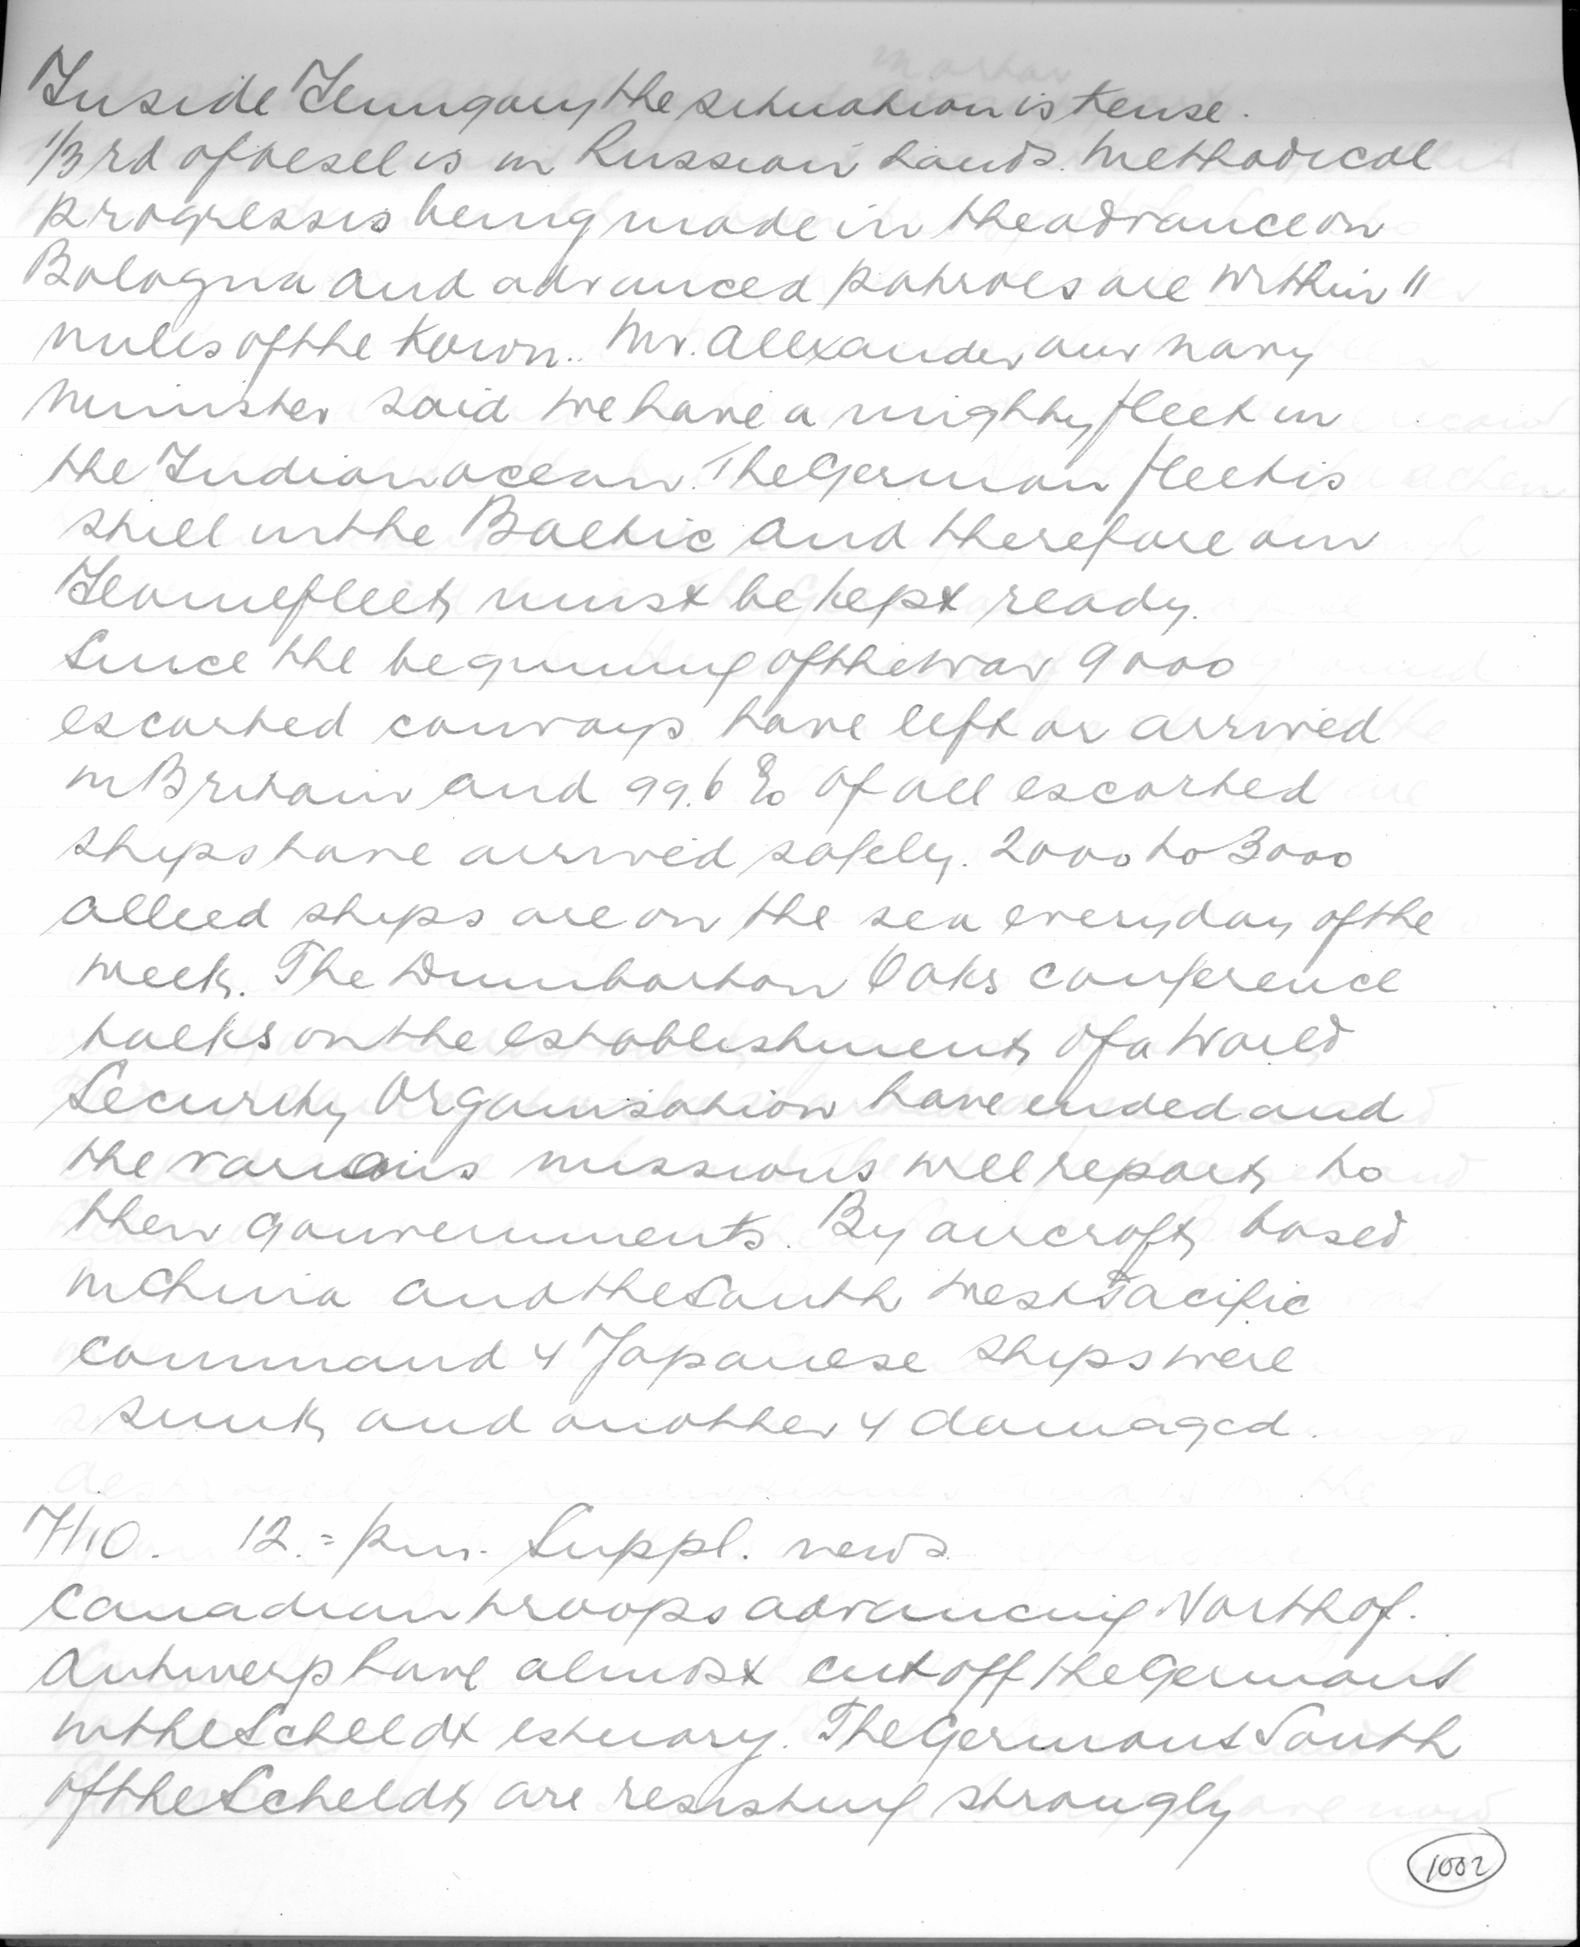 Inside Hungary the situation is tense.
1/3 rd of oesel is in Russian hands. Methodical
progress is being made in the advance on
Bologna and advanced patrols are within 11
miles of the town. Mr. Allexander our navy
minister said we have a mighty fleet in
the Indian ocean. The German fleet is
still in the Baltic and therefore our
Homefleet must be kept ready.
Since the beginning of the war 9000
escorted convoys have left or arrived
in Britain and 99.6 % of all escorted
ships have arrived safely. 2000 to 3000
allied ships are on the sea every day of the
week. The Dumbarton Oaks conference
talks on the establishment of a World
Security Organisation have ended and
the various missions will report to
their gouvernments. By aircraft based
in China and the South West Pacific
command 4 Japanese ships were
sunk and another 4 damaged.
7/10. 12.= pm. Suppl. news
Canadian troops advancing North of.
Antwerp have almost cut off the Germans
in the Scheldt estuary. The Germans South
of the Scheldt are resisting strongly
1002